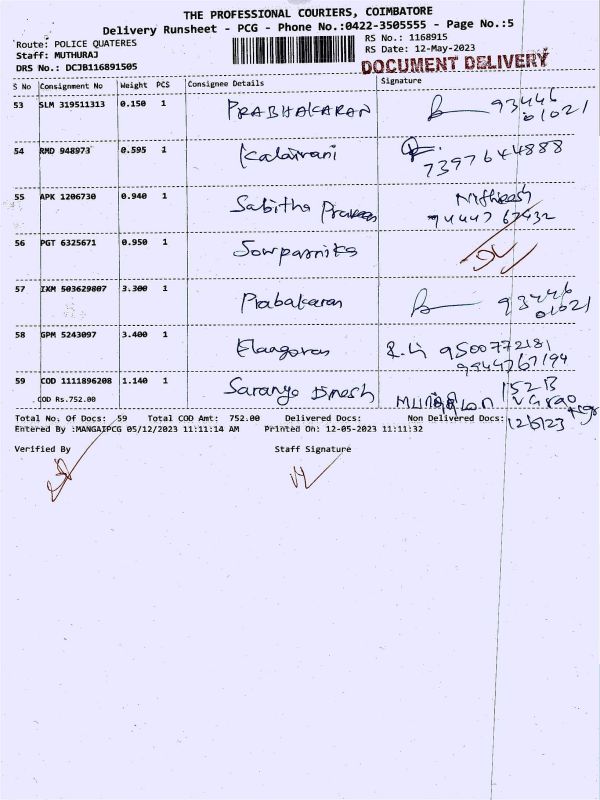 THE PROFESSIONAL COURIERS, COIMBATORE
Delivery Runsheet - PCG - Phone No.:0422-3505555 - Page No.:5
Route: POLICE QUATERES RS No.: 1168915
Staff: MUTHURAJ RS Date: 12-May-2023
DRS No.: DCJB116891505 DOCUMENT DELIVERY
S No Consignment No Weight PCS Consignee Details Signature
53 SLM 319511313 0.150 1 PRABHAKARAN 93446
01021
54 RMD 948973 0.595 1 Kalaivani
7397644888
55 APK 1206730 0.940 1 Sabitha
94447 67432
56 PGT 6325671 0.950 1 Sowparnika
57 IXM 503629807 3.300 1 Prabakaran 93446
01021
58 GPM 5243097 3.400 1 Elangovan 9500772181
9944767194
59 COD 1111896208 1.140 1 Saranya Dinesh 152B
COD Rs.752.00
Total No. Of Docs: 59 Total COD Amt: 752.00 Delivered Docs: Non Delivered Docs:
Entered By :MANGAIPCG 05/12/2023 11:11:14 AM Printed On: 12-05-2023 11:11:32 12/5/23
Verified By Staff Signature